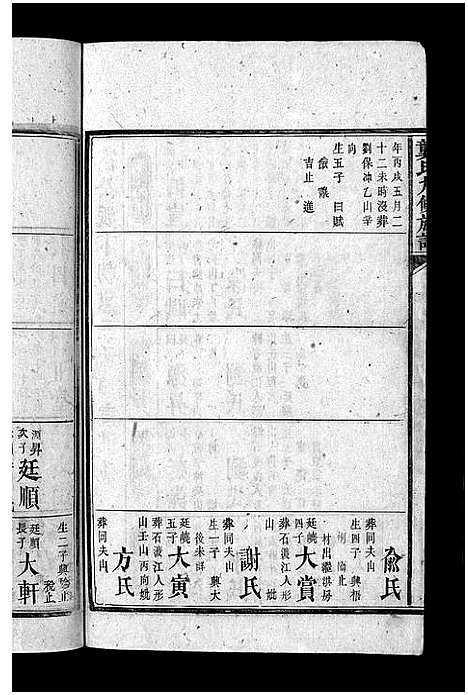 年丙戌五月二
十二未時沒葬
劉保冲乙山辛
向
生五子曰賦
吉止進
俞氏
葬同夫山
生四子興悟
村出繼淇房
廷饒
四子大賞
葬石溪江人形
山
謝氏
葬同夫山
生一子興大
後朱
廷饒
五子大寅
葬石溪江人形
山壬山丙向妣
方氏
葬同夫山
生二子興
廷順
長子大軒
次子廷順